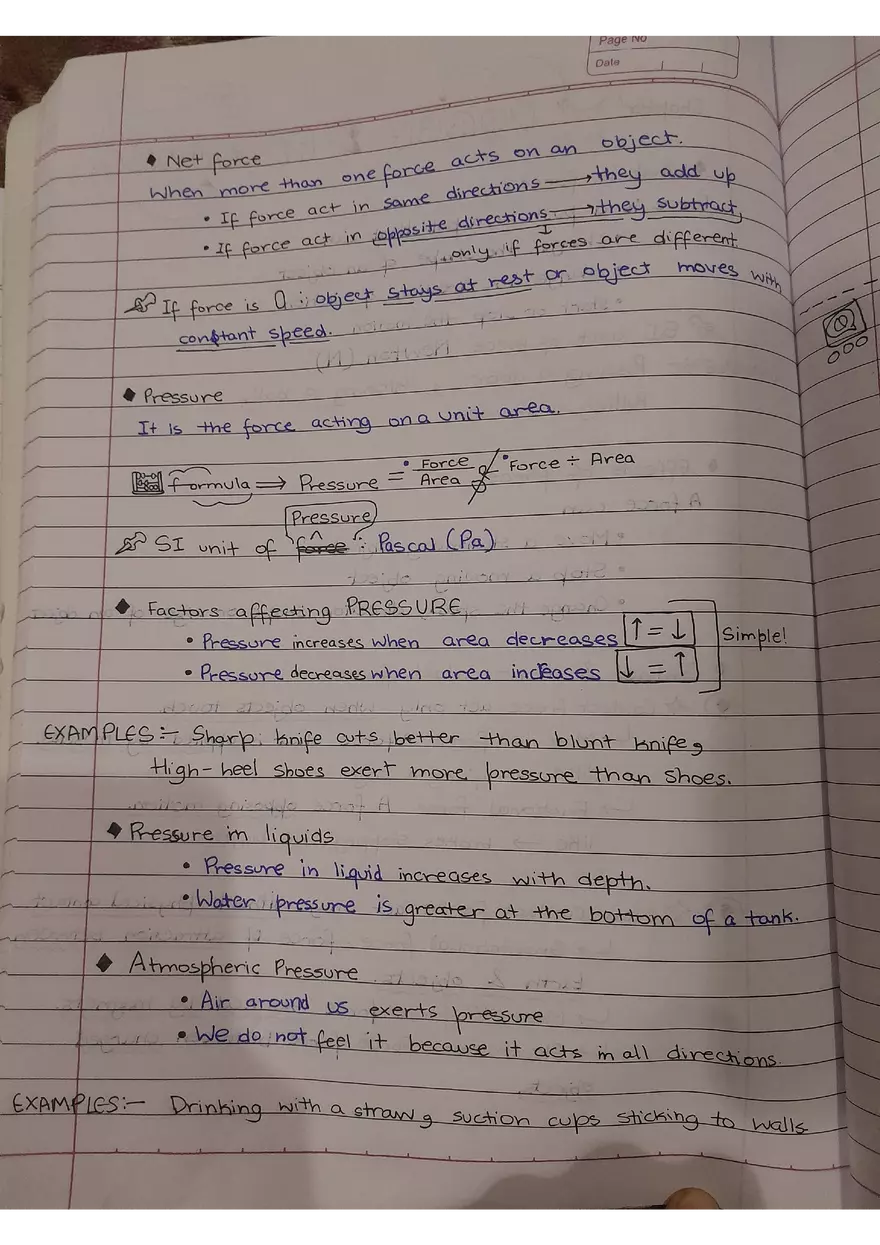 Page No
Date
♦ Net force
When more than one force acts on an object.
• If force act in same directions ⟶ they add up
• If force act in opposite directions ⟶ they subtract
↓ only if forces are different
If force is 0 : object stays at rest or object moves with
constant speed.
♦ Pressure
It is the force acting on a unit area.
formula ⟹ Pressure = • Force / Area or • Force ÷ Area
Pressure
SI unit of ~~force~~ ^ : Pascal (Pa)
♦ Factors affecting PRESSURE
• Pressure increases when area decreases ↑ = ↓
Simple!
• Pressure decreases when area increases ↓ = ↑
EXAMPLES:- Sharp knife cuts better than blunt knife,
High-heel shoes exert more pressure than shoes.
♦ Pressure in liquids
• Pressure in liquid increases with depth.
• Water pressure is greater at the bottom of a tank.
♦ Atmospheric Pressure
• Air around us exerts pressure
• We do not feel it because it acts in all directions.
EXAMPLES:- Drinking with a straw, suction cups sticking to walls